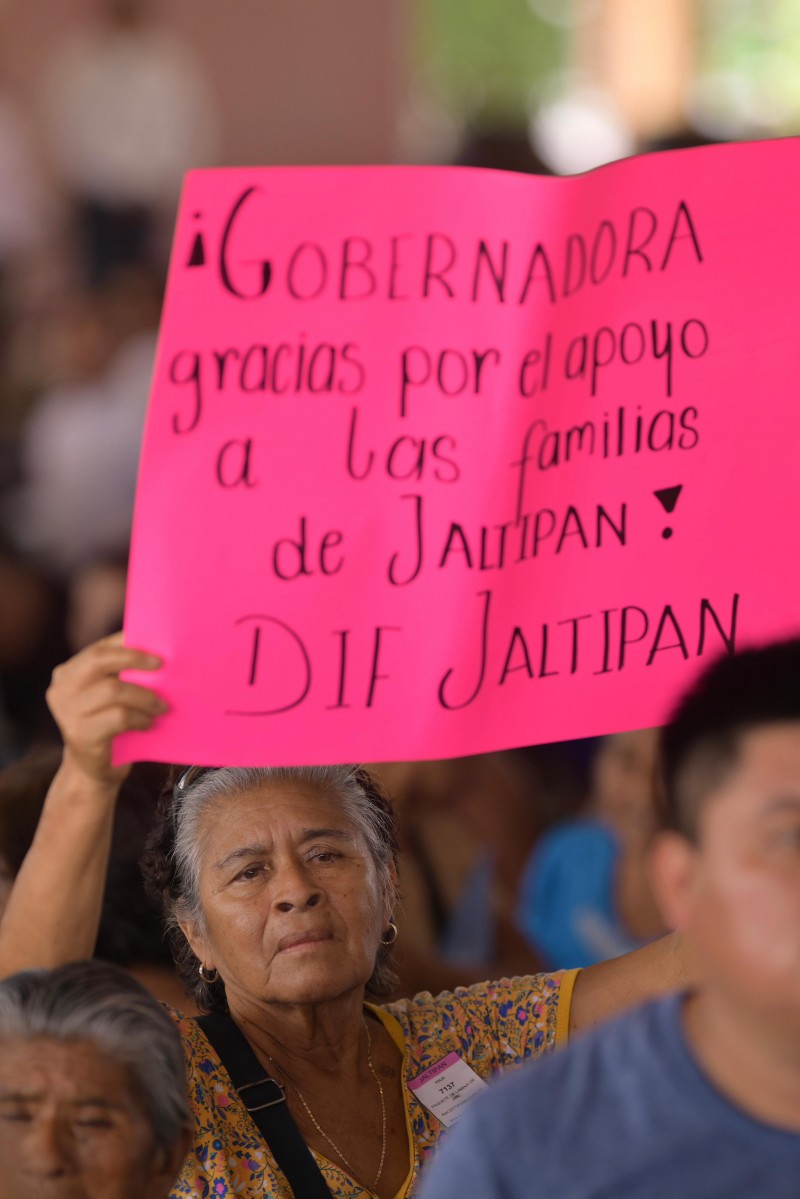 ¡GOBERNADORA
gracias por el apoyo
a las familias
de JALTIPAN!
DIF JALTIPAN
JALTIPAN
7137